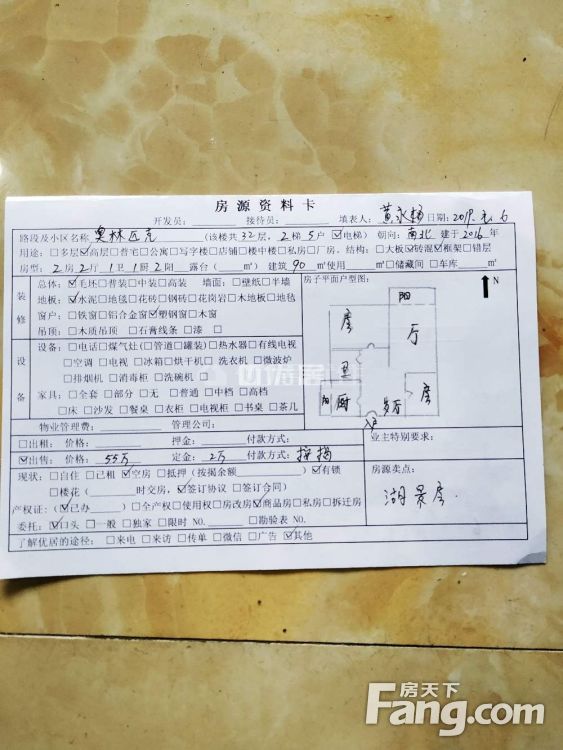 房源资料卡
开发员: 接待员: 填表人: 黄永 日期: 2019. 6
路段及小区名称 奥林匹克 (该楼共32层, 2梯5户 ☑电梯) 朝向: 南北 建于2016年
用途: □多层☑高层□普宅□公寓□写字楼□店铺□楼中楼□私房□厂房。结构: □大板☑砖混☑框架□错层
房型: 2房2厅1卫1厨2阳 露台(㎡) 建筑90㎡使用㎡□储藏间□车库㎡
装修
总体: ☑毛坯□普装□中装□高装 墙面: □壁纸□半墙
地板: ☑水泥□地毯□花砖□钢砖□花岗岩□木地板□地毯
窗户: □铁窗□铝合金窗☑塑钢窗□木窗
吊顶: □木质吊顶 □石膏线条 □漆 □
设备
设备: □电话□煤气灶(□管道□罐装)□热水器□有线电视
□空调 □电视 □冰箱□烘干机□ 洗衣机 □微波炉
□排烟机 □消毒柜 □洗碗机 □
家具: □全套 □部分 □无 □普通 □中档 □高档
□床 □沙发 □餐桌 □衣柜 □电视柜 □书桌 □茶几
房子平面户型图:
N
阳
房
厅
卫
阳
厨
房
入户
物业管理费: 管理公司:
□出租: 价格: 押金: 付款方式:
☑出售: 价格: 55万 定金: 2万 付款方式: 按揭
业主特别要求:
现状: □自住 □已租 ☑空房 □抵押(按揭余额 ) ☑有锁
□楼花( 时交房, ☑签订协议 □签订合同)
产权证: (☑已办) □全产权□使用权□房改房☑商品房□私房□拆迁房
委托: ☑口头 □一般 □独家 □限时 NO. □勘验表 NO.
房源卖点:
湖景房.
了解优居的途径: □来电 □来访 □传单 □微信 □广告 ☑其他
房天下
Fang.com